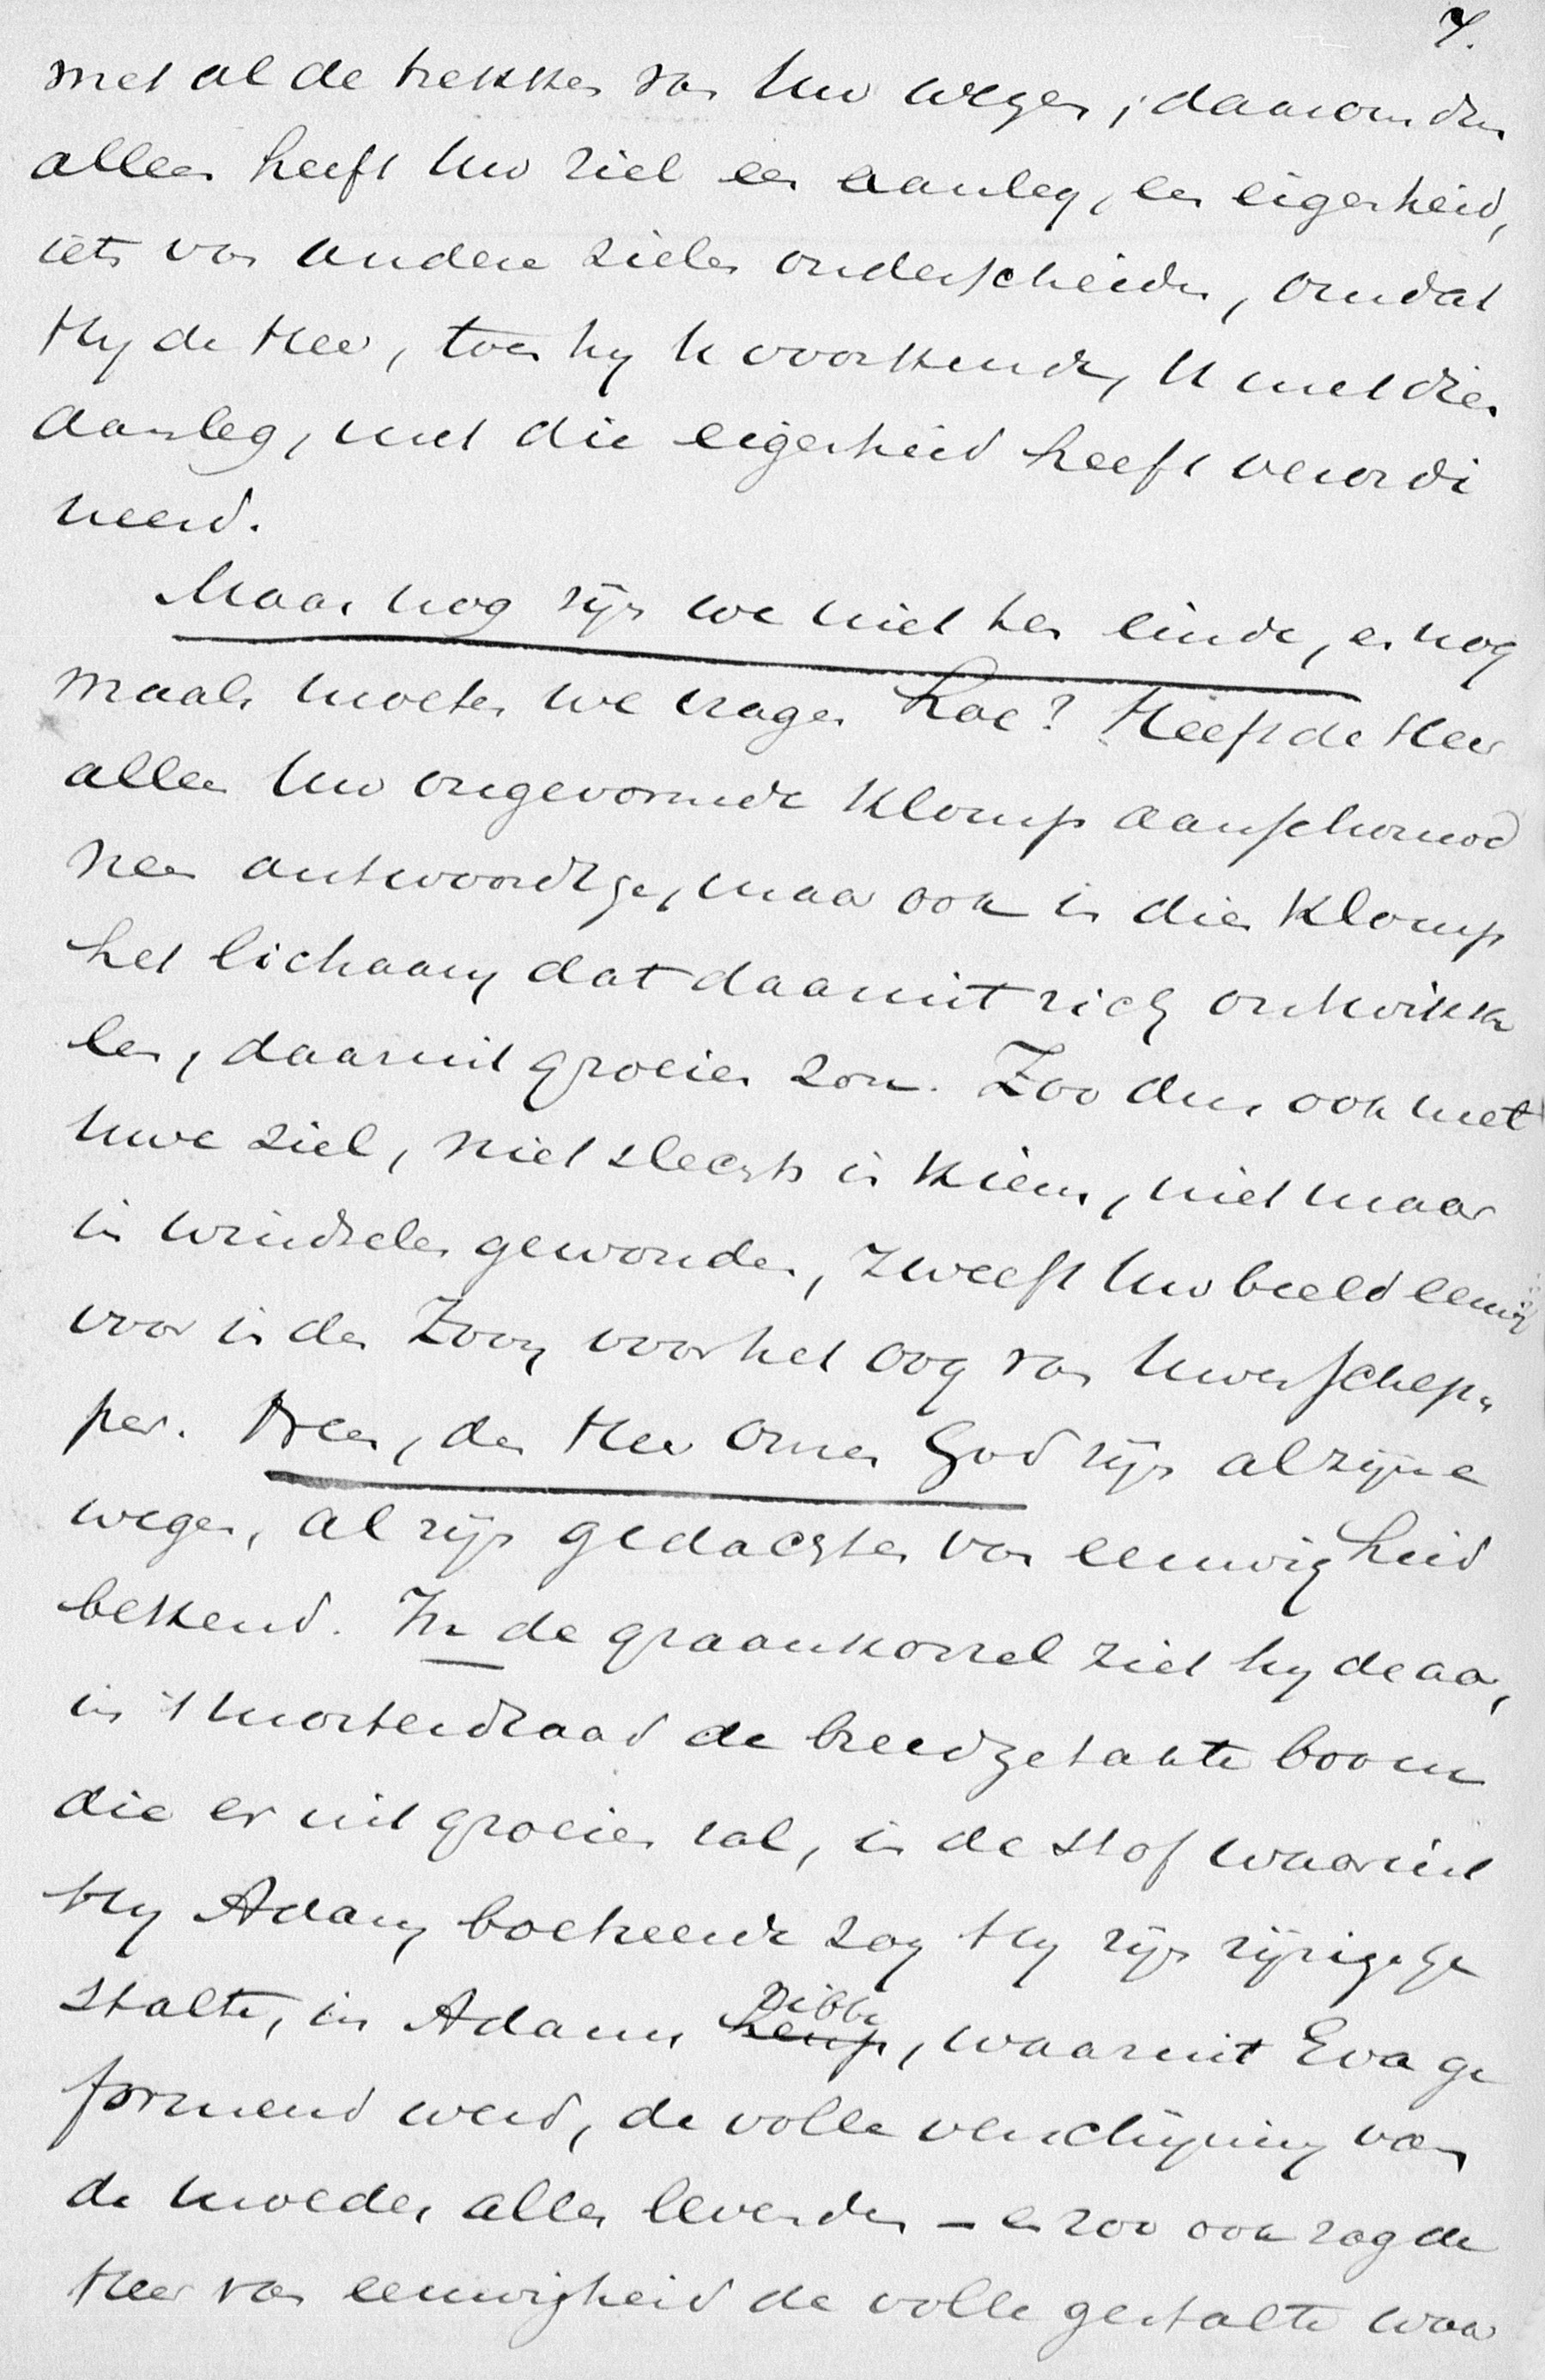 7.
met al de trekken van Uw wezen; daarom dan
alleen heeft Uw ziel een aanleg, een eigenheid,
iets van andere zielen onderscheiden, omdat
Hy de Heer, toen hy U voorkende, U met dien
aanleg, met die eigenheid heeft verordi
neerd.
Maar nog zijn we niet ten einde, en nog
maals moeten we vragen hoe? Heeft de Heer
alleen Uw ongevormde klomp aanschouwd
neen antwoordt ge, maar ook in dien klomp
het lichaam dat daaruit zich ontwikke
len, daaruit groeien zou. Zoo dus ook met
Uwe ziel, niet slechts in kiem, niet maar
in windselen gewonden, zweeft Uw beeld eeuwig
voor in den Zoon voor het oog van Uwen Schep„
per. Neen, den Heer onzen God zijn al zijne
wegen, al zijn gedachten van eeuwigheid
bekend. In de graankorrel ziet hy de aar,
in 't mosterdzaad de breedgetakte boom
die er uit groeien zal, in de stof waaruit
Hy Adam boetseerde zag Hy zijn zijnige ge
stalte, in Adams ribbe, waaruit Eva ge
formeerd werd, de volle verschijning van
de moeder aller levenden – en zoo ook zag de
Heer van eeuwigheid de volle gestalte waar